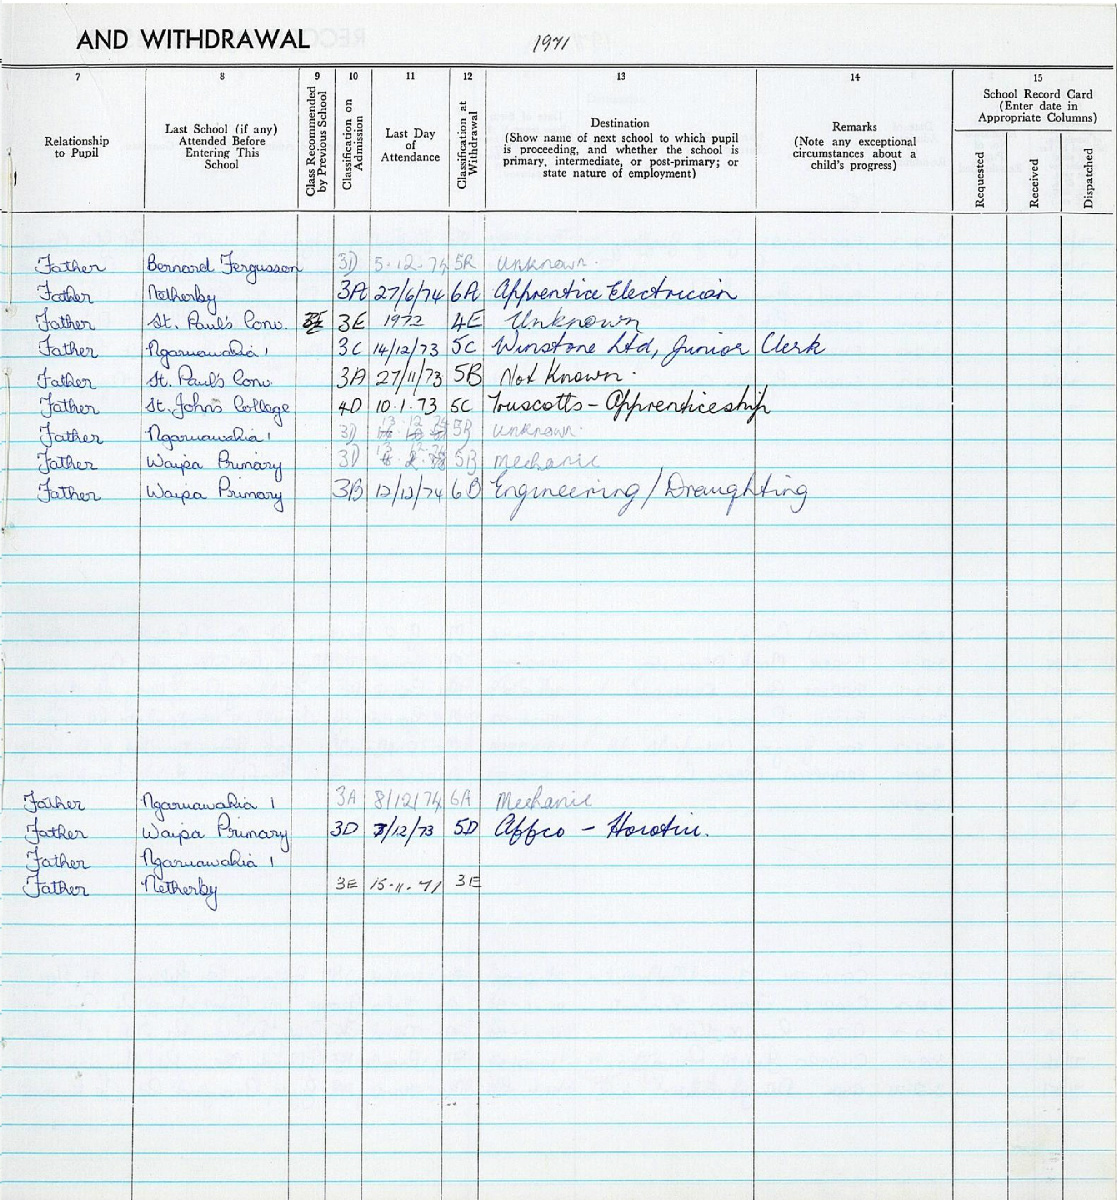 AND WITHDRAWAL 1971
7 8 9 10 11 12 13 14 15
Relationship to Pupil
Last School (if any) Attended Before Entering This School
Class Recommended by Previous School
Classification on Admission
Last Day of Attendance
Classification at Withdrawal
Destination
(Show name of next school to which pupil is proceeding, and whether the school is primary, intermediate, or post-primary; or state nature of employment)
Remarks
(Note any exceptional circumstances about a child's progress)
School Record Card
(Enter date in Appropriate Columns)
Requested Received Dispatched
Father Bernard Fergusson 3D 5.12.74 5R Unknown.
Father Netherby 3A 27/6/74 6A Apprentice Electrician
Father St. Paul's Conv. 3E 1972 4E Unknown
Father Ngaruawahia 1 3C 14/12/73 5C Winstone Ltd, Junior Clerk
Father St. Paul's Conv. 3A 27/11/73 5B Not Known.
Father St. John's College 4D 10.1.73 5C Truscotts - Apprenticeship
Father Ngaruawahia 1 3D Unknown.
Father Waipa Primary 3D Mechanic
Father Waipa Primary 3B 12/12/74 6B Engineering/Draughting
Father Ngaruawahia 1 3A 8/12/74 6A Mechanic
Father Waipa Primary 3D 7/12/73 5D Affco - Horotiu.
Father Ngaruawahia 1
Father Netherby 3E 15.11.71 3E